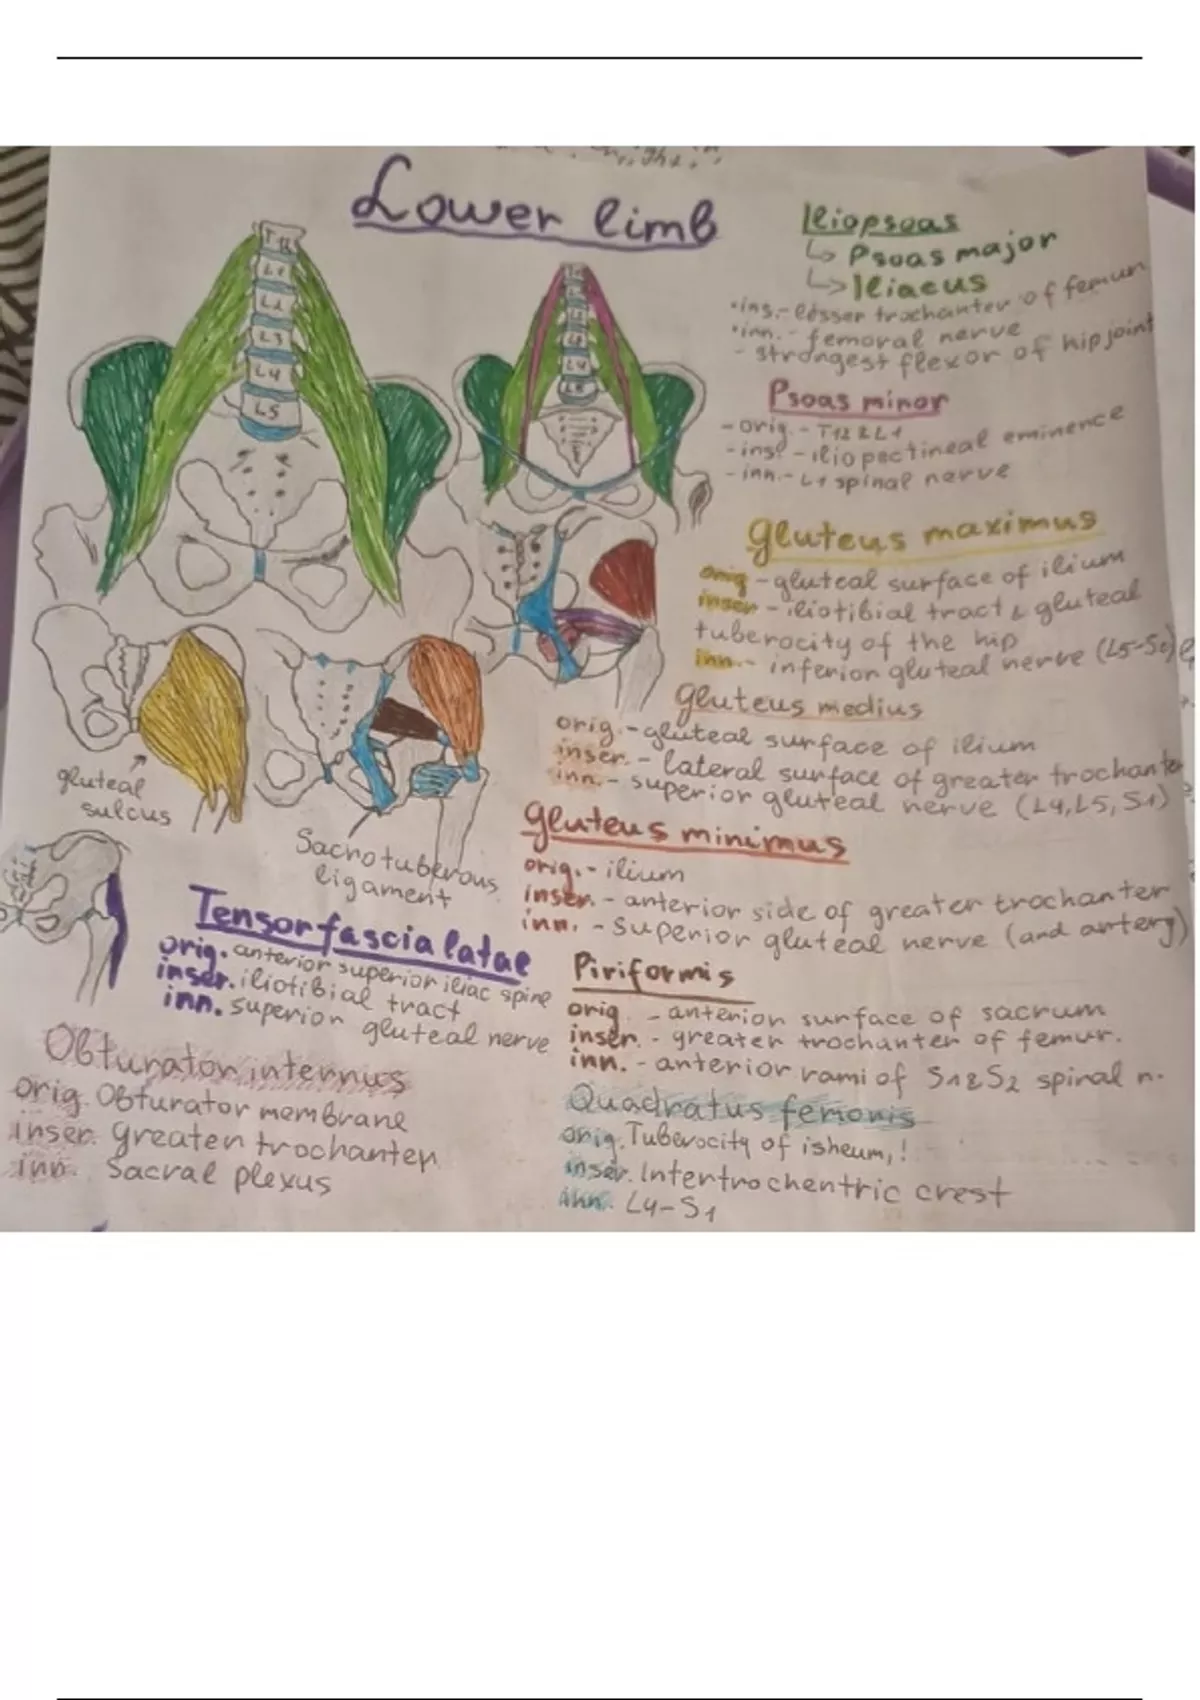 Lower limb
Iliopsoas
↳ Psoas major
↳ Iliacus
•ins.- lesser trochanter of femur
•inn. - femoral nerve
- strongest flexor of hip joint
Psoas minor
- orig. - T12 & L1
- ins. - iliopectineal eminence
- inn. - L1 spinal nerve
T12
L1
L2
L3
L4
L5
gluteus maximus
orig - gluteal surface of ilium
inser - iliotibial tract & gluteal
tuberocity of the hip
inn. - inferior gluteal nerve
gluteus medius
orig. - gluteal surface of ilium
inser. - lateral surface of greater trochanter
inn. - superior gluteal nerve (L4, L5, S1)
gluteal
sulcus
Sacrotuberous
ligament
gluteus minimus
orig. - ilium
inser. - anterior side of greater trochanter
inn. - Superior gluteal nerve (and artery)
Tensor fascia latae
orig. anterior superior iliac spine
inser. iliotibial tract
inn. superior gluteal nerve
Piriformis
orig. - anterior surface of sacrum
inser. - greater trochanter of femur.
inn. - anterior rami of S1&S2 spinal n.
Obturator internus
orig. Obturator membrane
inser. greater trochanter
inn. Sacral plexus
Quadratus femoris
orig. Tuberocity of isheum, !
inser. Intertrochentric crest
inn. L4-S1